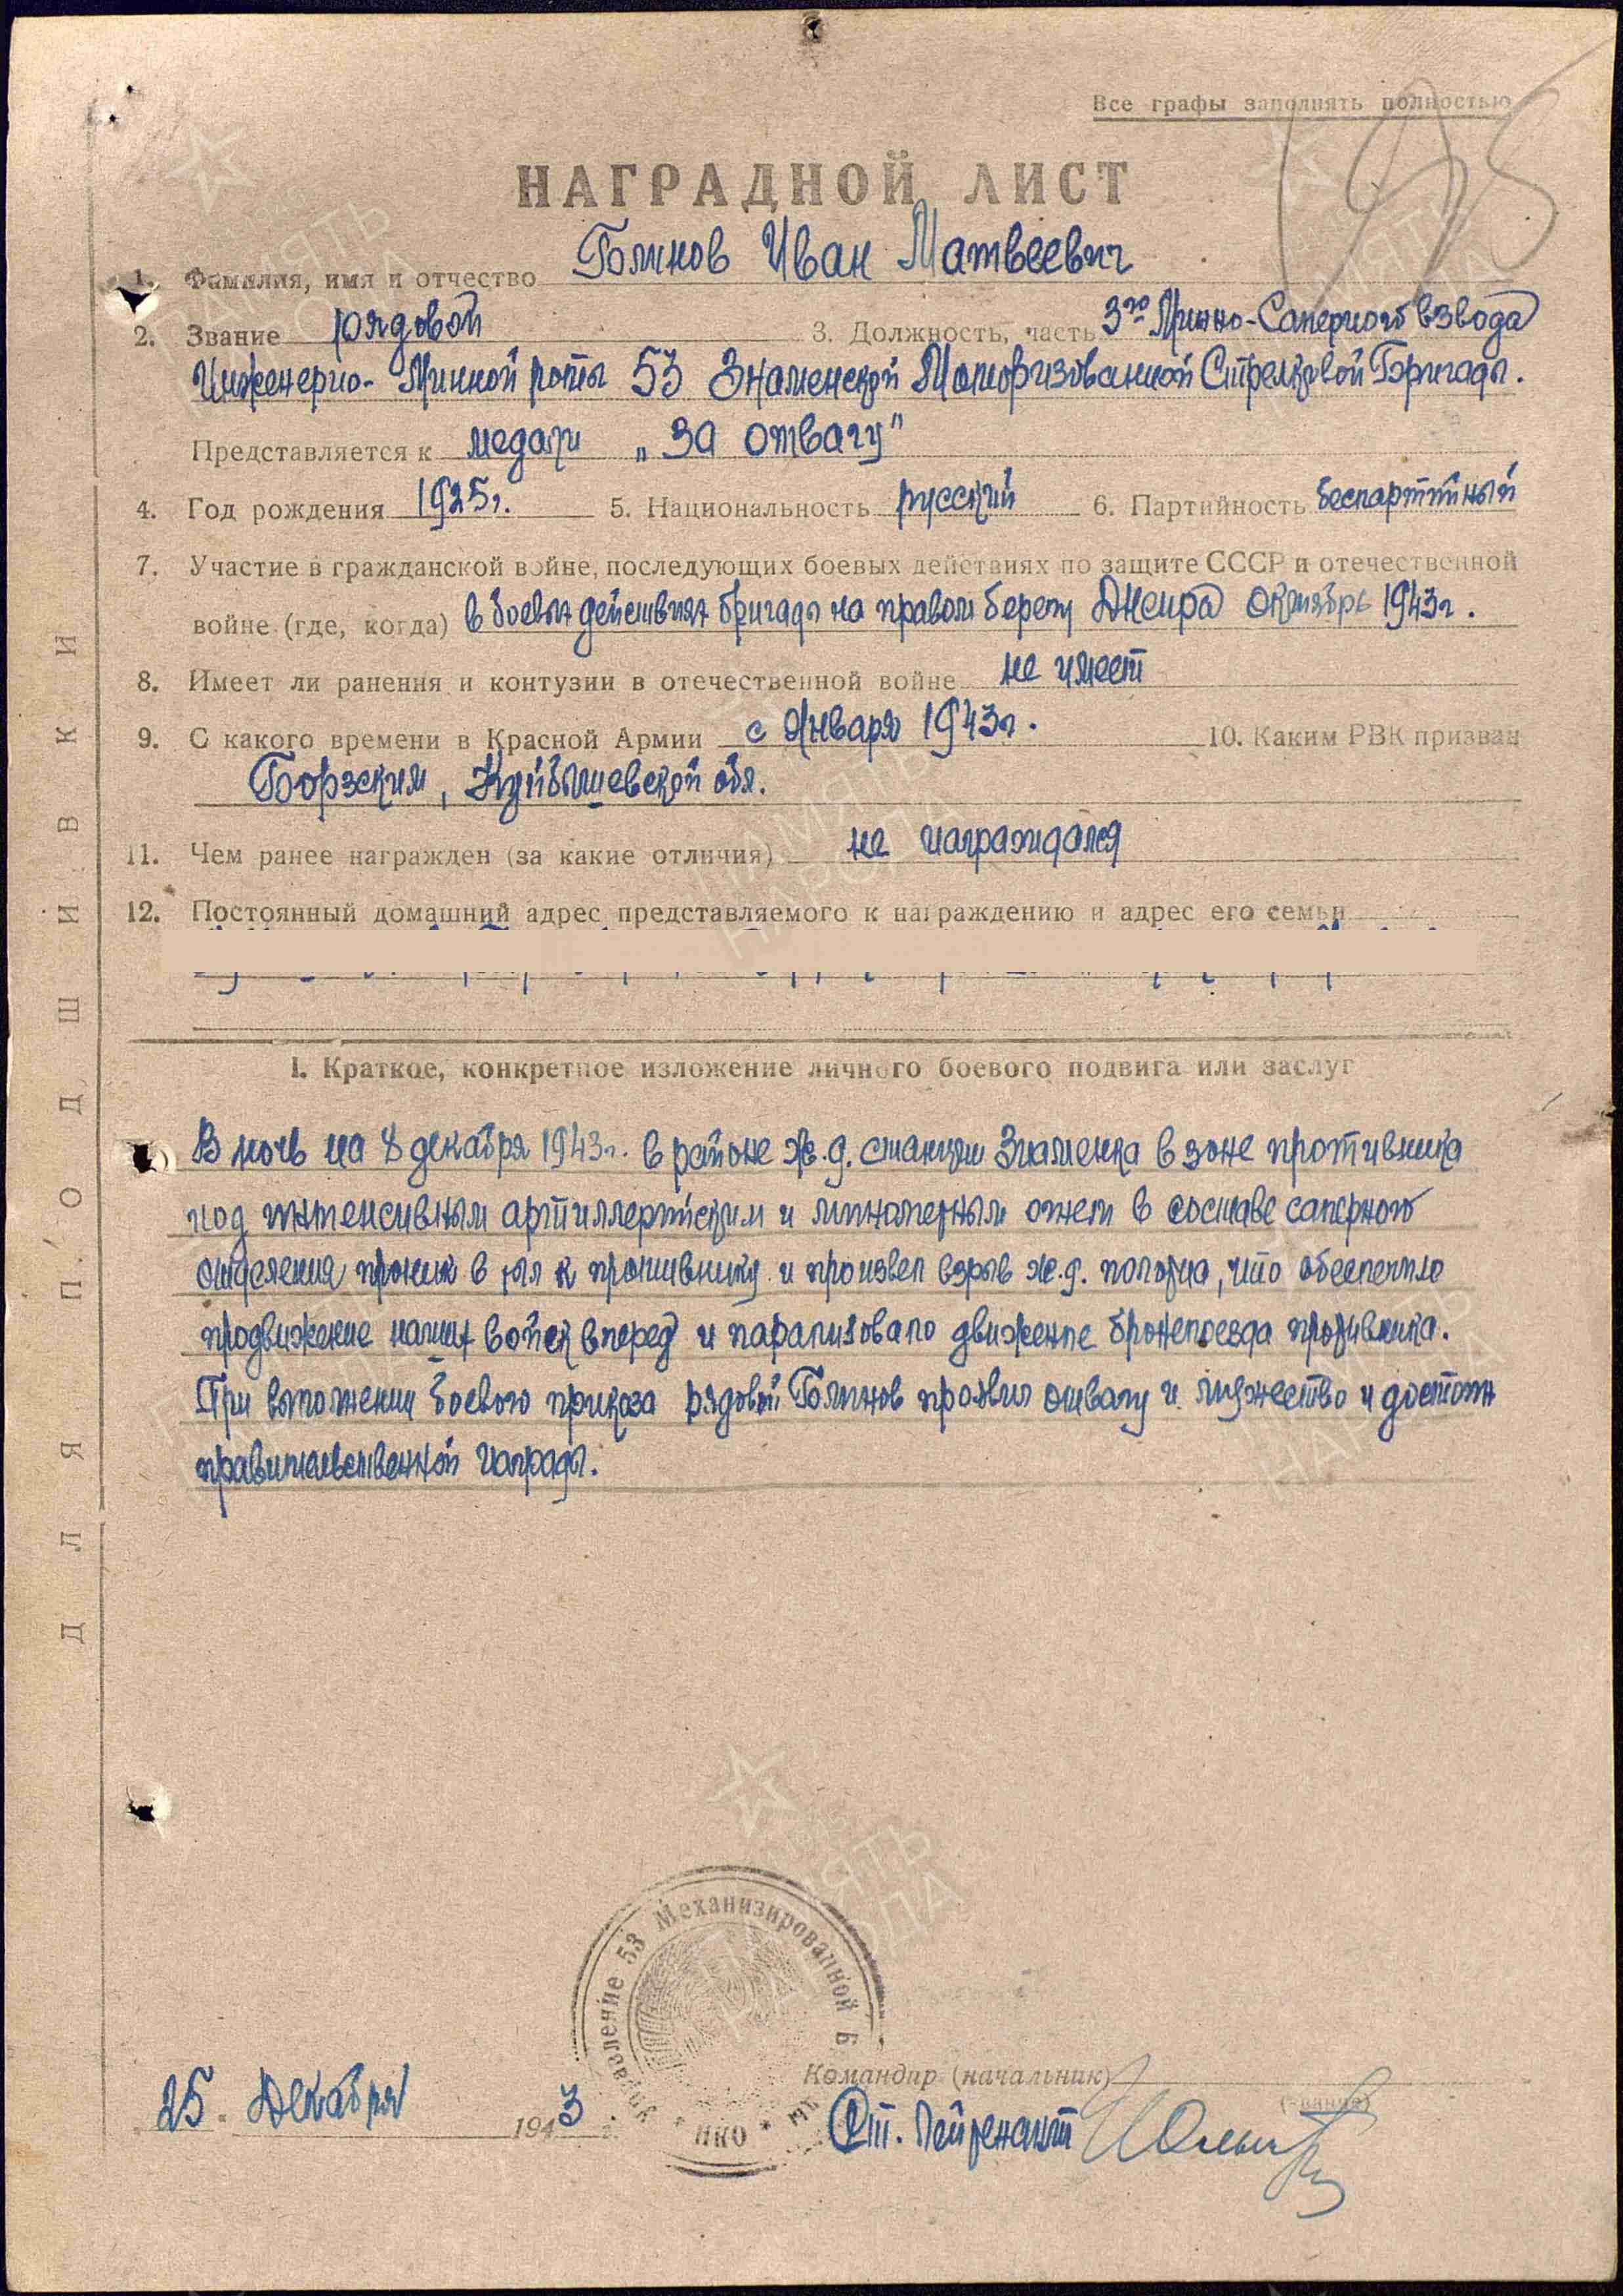 Все графы заполнять полностью
195
НАГРАДНОЙ ЛИСТ
1. Фамилия, имя и отчество Блинов Иван Матвеевич
2. Звание рядовой 3. Должность, часть 3го Минно-Саперного взвода
Инженерно-Минной роты 53 Знаменской Моторизованной Стрелковой Бригады.
Представляется к медали „За отвагу"
4. Год рождения 1925г. 5. Национальность русский 6. Партийность беспартийный
7. Участие в гражданской войне, последующих боевых действиях по защите СССР и отечественной
войне (где, когда) в боевых действиях бригады на правом берегу Днепра октябрь 1943г.
8. Имеет ли ранения и контузии в отечественной войне не имеет
9. С какого времени в Красной Армии с Января 1943г. 10. Каким РВК призван
Борзским, Куйбышевской обл.
11. Чем ранее награжден (за какие отличия) не награждался
12. Постоянный домашний адрес представляемого к награждению и адрес его семьи
I. Краткое, конкретное изложение личного боевого подвига или заслуг
В ночь на 8 декабря 1943г. в районе ж.д. станции Знаменка в зоне противника
под интенсивным артиллерийским и минометным огнем в составе саперного
отделения проник в тыл к противнику и произвел взрыв ж.д. полотна, что обеспечило
продвижение наших войск вперед и парализовало движение бронепоезда противника.
При выполнении боевого приказа рядовой Блинов проявил отвагу и мужество и достоин
правительственной награды.
Управление 53 Механизированной Б
* НКО *
Командир (начальник)
(звание)
25 Декабря 1943 г. Ст. Лейтенант
ДЛЯ ПОДШИВКИ
ПАМЯТЬ
НАРОДА